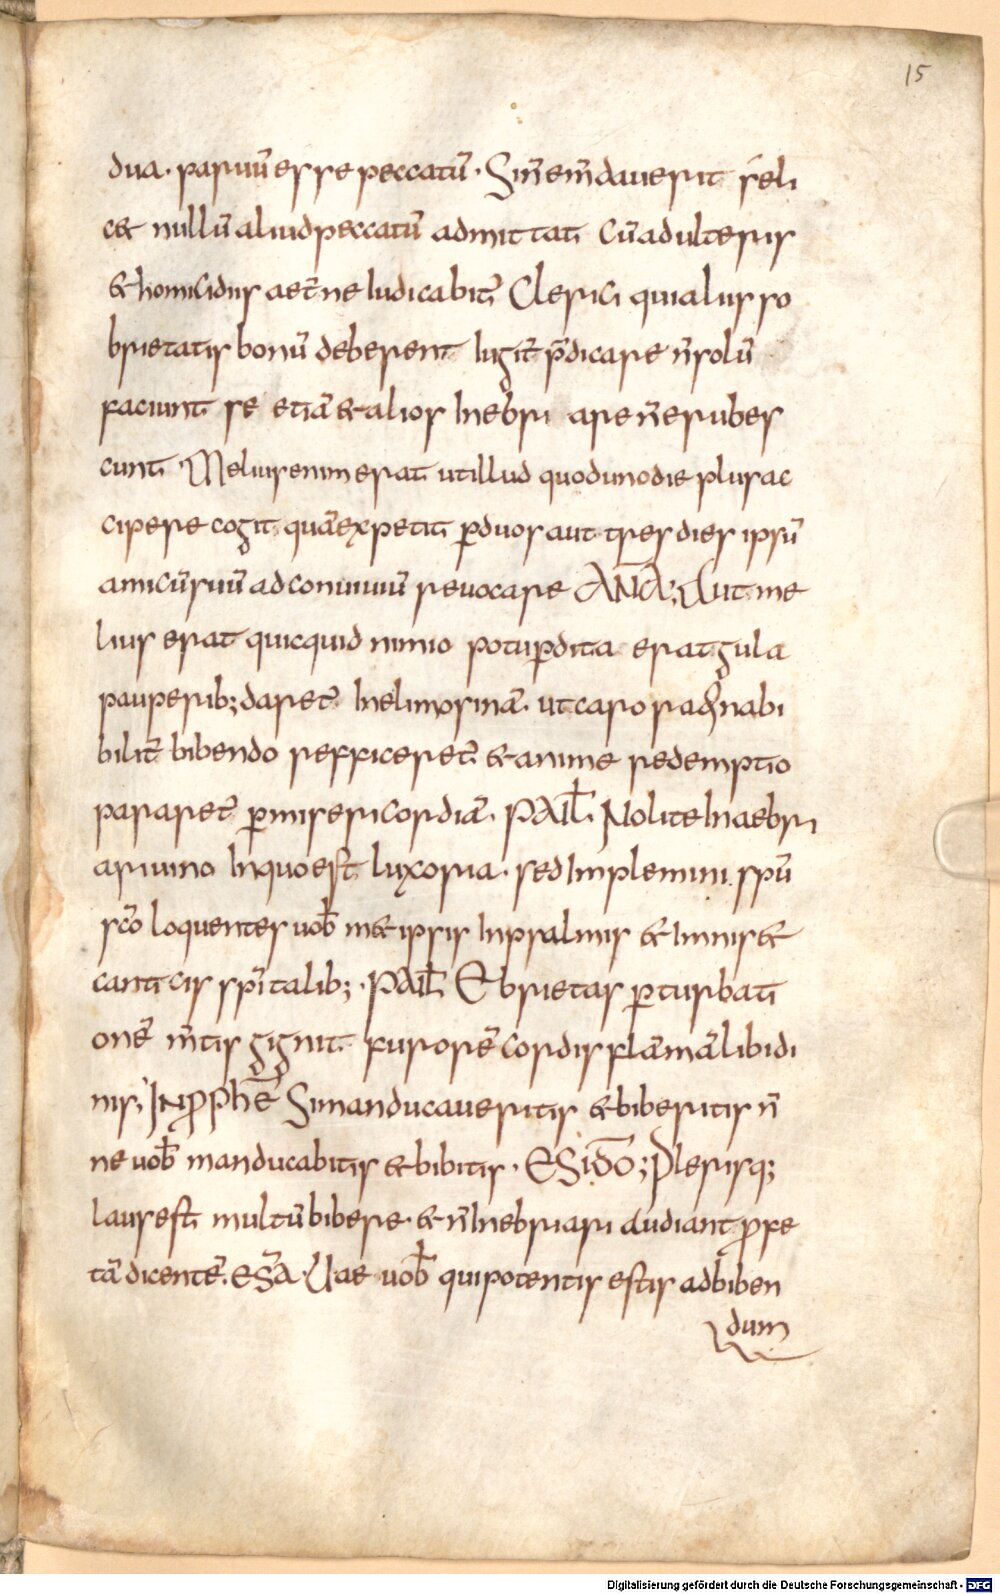 15
dua. paruū esse peccatū. Sin̄em̄dauerit s̄eli
c& nullū aliudpeccatū admittat cūadulteris
&homicidiis aet̄ne Iudicabit̄ Clerici quialiis so
brietatis bonū deberent Iugit̄ p̄dicare n̄solū
faciunt se etiā&alios Inebri are n̄erubes
cunt. Meliusenim erat utillud quodunodie plusac
cipere cogit quāexpetit ꝑduos aut tres dies ipsū
amicūsuū adconuiuiū reuocare ANÃ; Aut me
lius erat quicquid nimio potuꝑdita erat gula
pauperib; daret̄ Inelimosinā. ut caro rađnabi
bilit̄ bibendo refficeret̄ &anime redemptio
pararet̄ ꝑmisericordiā. PAƚ. Nolite Inaebri
ariuino Inquoest luxoria. sedImplemini spū
sc̄o loquentes uob̄ m&ipsis Inpsalmis &Imnis&
canticis sp̄italib; . PAƚ Ebrietas ꝑturbati
onē m̄tis gignit furorē cordis flāmā libidi
nis, IN ꝓPhE̅ Simanducaueritis &biberitis n̄
ne uob̄ manducabitis &bibitis. ESIDŌ; Plerisq;
laus est multū bibere. &n̄Inebriari Audiant ꝓfe
tā dicentē. ES̄A. Uae uob̄ quipotentis estis adbiben
dum
Digitalisierung gefördert durch die Deutsche Forschungsgemeinschaft - DFG